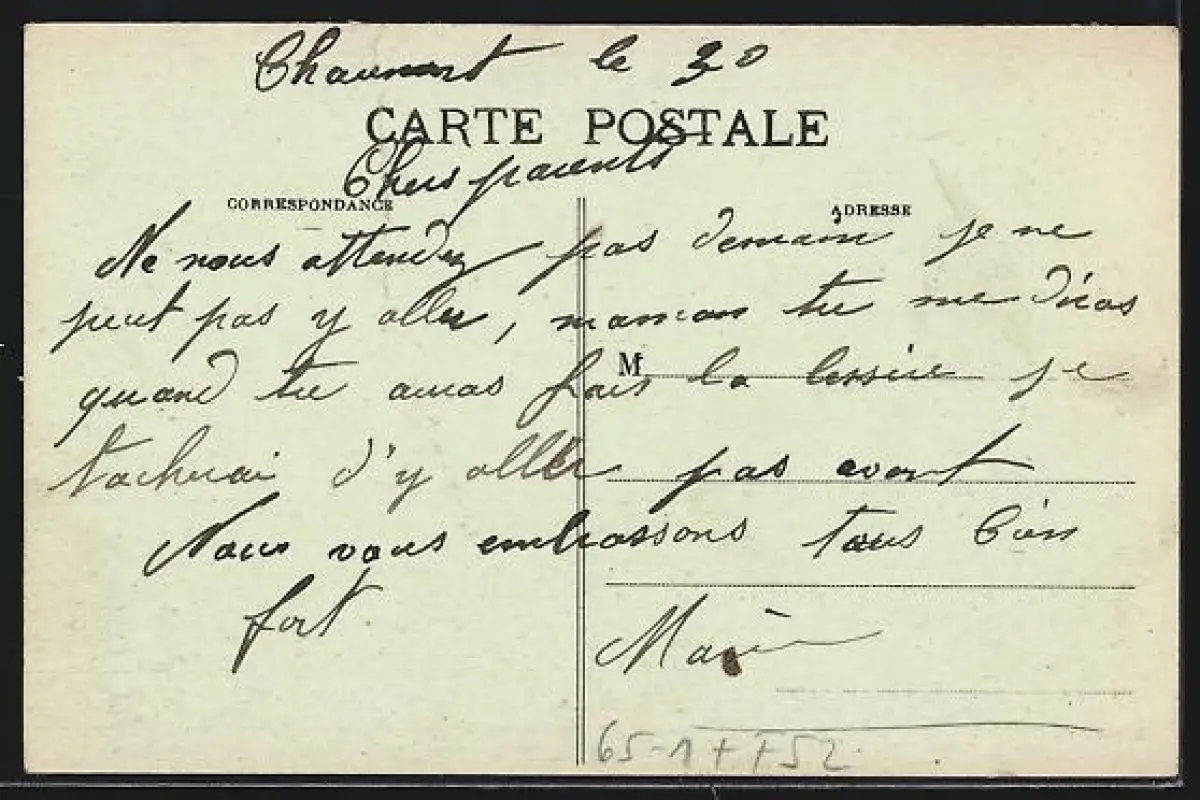 Chaumont le 30
CARTE POSTALE
Chers parents
CORRESPONDANCE
ADRESSE
Ne nous attendez pas demain je ne
peut pas y aller, maman tu me diras
M
quand tu auras fais la lessive je
tacherai d'y aller pas avant
Nous vous embrassons tous bien
fort
Marie
65-1++52